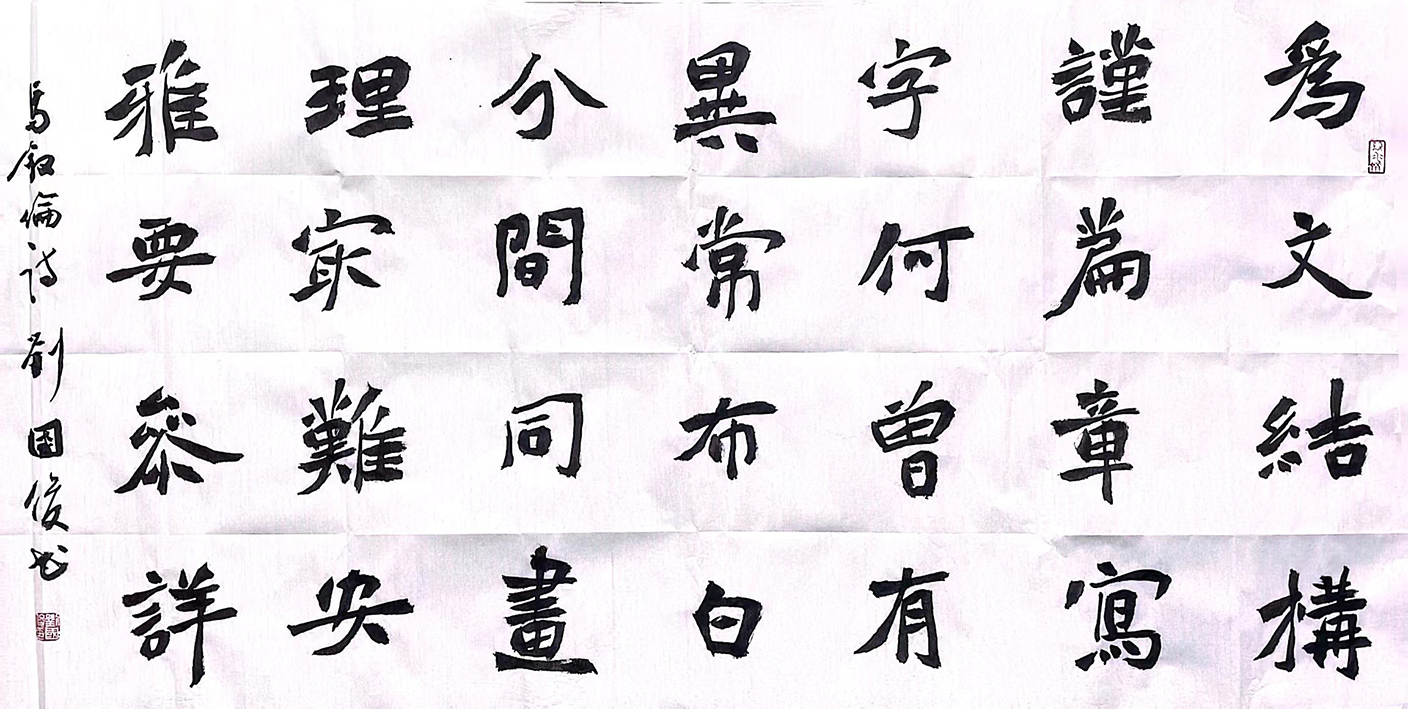 爲文結構
謹篇章寫
字何曾有
異常布白
分間同畫
理冣難安
雅要叅詳
馬叙倫詩劉國俊书